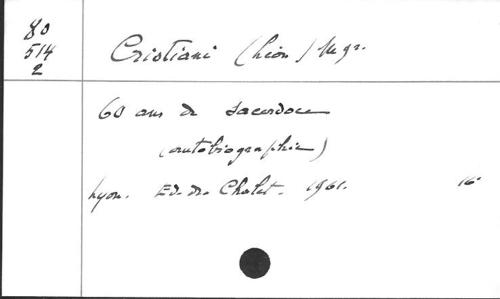 80
514
2
Cristiani (Léon) Mgr.
60 ans de sacerdoce
(autobiographie)
Lyon. Ed. du Chalet. 1961. 16°